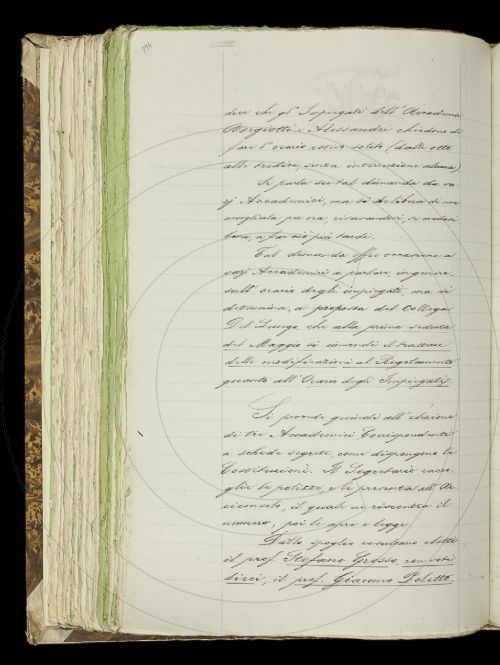 294
dice che gl' Impiegati dell' Accademia
Borgiotti e Alessandri chiedono di
fare l' orario estivo solito (dalle otto
alle tredici, senza interruzione alcuna)
Si parla su tal dimanda da va-
rj Accademici, ma si delibera di non
accoglierla per ora, riservandosi, se ordin
bene, a far ciò più tardi.
Tal dimanda offre occasione a
varj Accademici a parlare, in genere,
sull' orario degli impiegati, ma si
determina, a proposta del Collega
Del Lungo, che alla prima seduta
del Maggio si rimandi il trattare
delle modificazioni al Regolamento
quanto all' Orario degli Impiegati.
Si procede quindi all' elezione
di tre Accademici Corrispondenti
a schede segrete, come dispongono le
Costituzioni. Il Segretario racco-
glie le polizze, e le presenta all' Ar-
ciconsolo, il quale ne riscontra il
numero, poi le apre e legge.
Dallo spoglio resultano eletti
il prof. Stefano Grosso, con voti
dieci, il prof. Giacomo Poletto